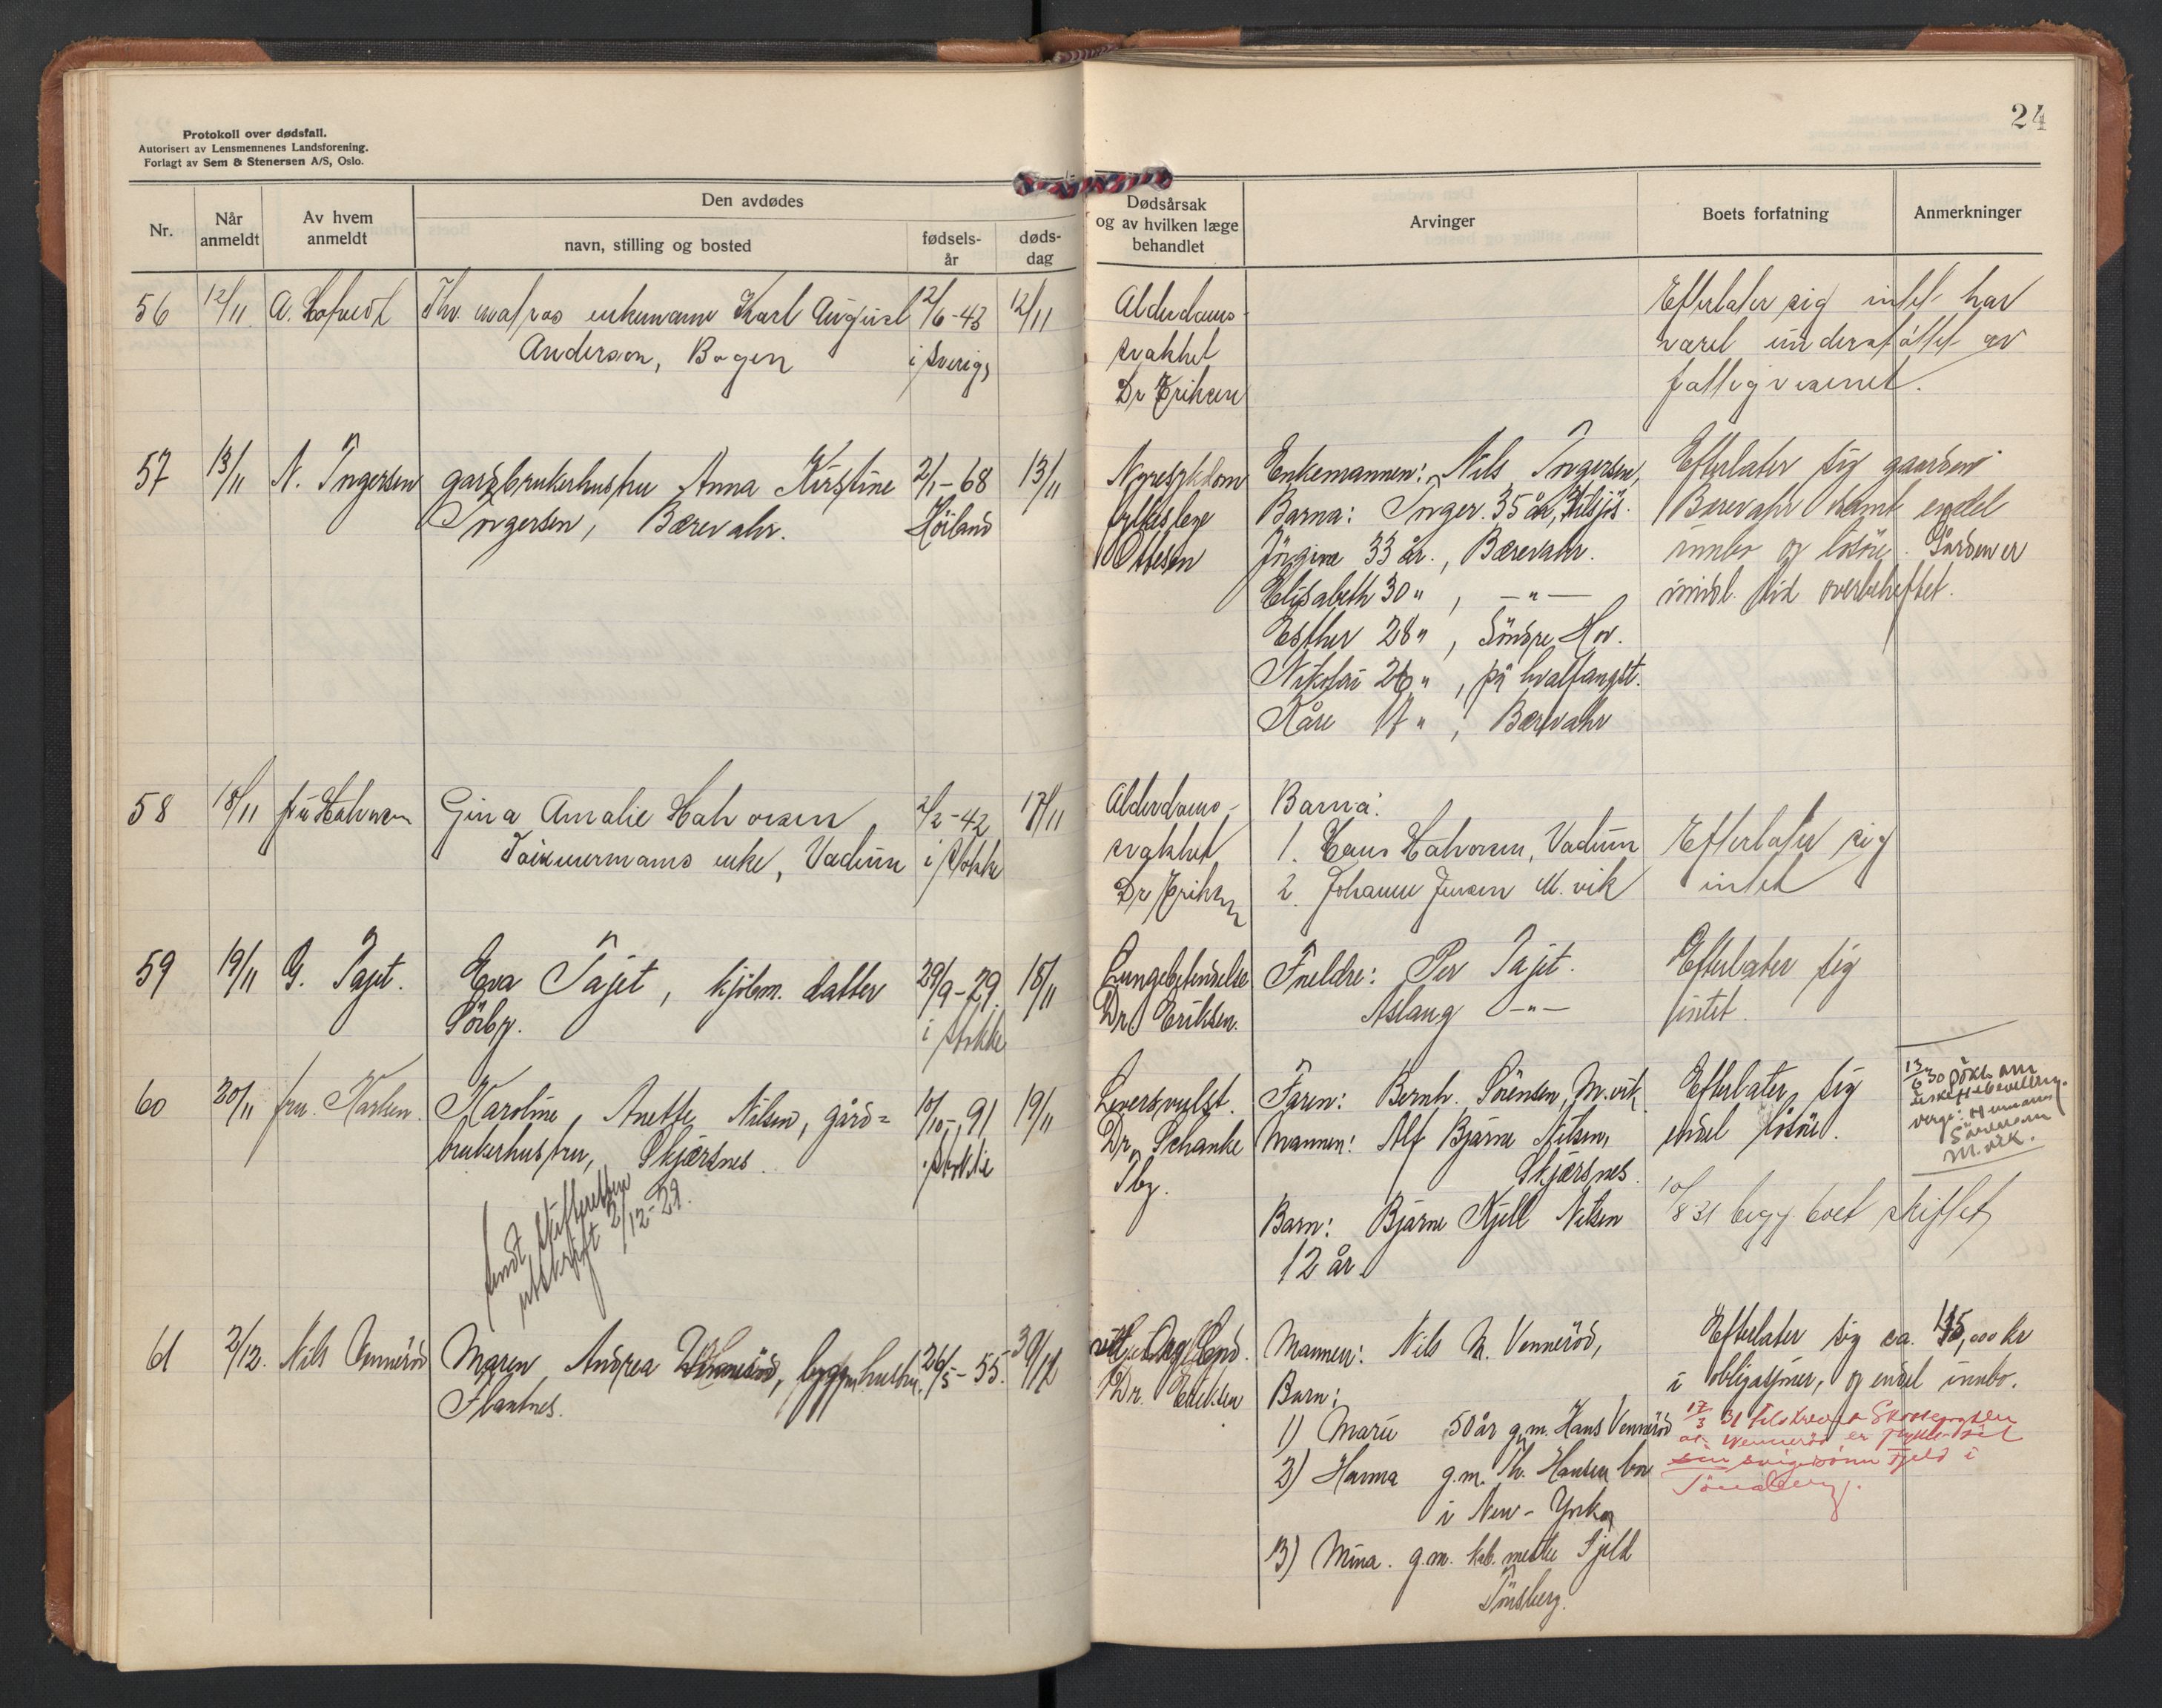 Protokoll over dødsfall.
Autorisert av Lensmennenes Landsforening.
Forlagt av Sem & Stenersen A/S, Oslo.
24
Nr.
Når anmeldt
Av hvem anmeldt
Den avdødes
navn, stilling og bosted
fødsels-år
døds-dag
Dødsårsak og av hvilken læge behandlet
Arvinger
Boets forfatning
Anmerkninger
56 12/11 A. Hofvedt Fhv. matros enkemann Karl August 2/6-43 12/11
Anderson, Bogen i Sverige
Alderdoms-
svakhet
Dr Eriksen
Efterlater sig intet har
været understøttet av
fattigvesenet.
57 13/11 N. Ingersen gardbrukerhustru Anna Kirstine 2/1-68 13/11
Ingersen, Bærevahr. Höiland
Nyresykdom
fylkeslege
Ottesen
Enkemannen: Nils Ingersen,
Barna: Inger. 35 år,
Jörgine 33 år., Bærevahr.
Elisabeth 30 " , — " —
Esther 28 " , Söndre Hov.
Nikolai 26 " , på hvalfangst.
Kåre 17 " , Bærevahr
Efterlater sig gaarden
Bærevahr samt endel
innbo og lösöre. Gården er
imidl. tid overbeheftet.
58 18/11 fru Halvorsen Gina Amalie Halvorsen 2/2-42 17/11
Tømmermanns enke, Vadum i Stokke
Alderdoms-
svakhet
Dr Eriksen
Barna:
1. Hans Halvorsen, Vadum
2. Johanne Jensen M. vik
Efterlater sig
intet
59 19/11 G. Tajet. Eva Tajet, kjöbm. datter 29/9-29. 18/11
Sörby. i Stokke
Lungebetendelse
Dr. Eriksen.
Foreldre: Per Tajet.
Aslaug — " —
Efterlater sig
intet.
60 20/11 fru. Karlsen. Karoline, Anette Nilsen, gård=
brukerhustru, Skjærsnes. 10/10-91 19/11
i Stokke
sendt skifteretten
utskrift 2/12-29.
Leversvulst.
Dr. Schanke
Tbg.
Faren: Bernh. Sörensen, M.vik
Mannen: Alf Bjarne Nilsen,
Skjærsnes.
Barn: Bjarne Kjell Nilsen
12 år.
Efterlater sig
endel lösöre.
13/6 30 sökt om
uskiftebevilling.
verge: Hermann
Sörensen
M.vik.
10/8 31 begj. boet skiftet
61 2/12. Nils Venneröd Maren Andrea Venneröd, hustru. 26/5-55. 30/11
Flautnes.
Dr. Eriksen
Mannen: Nils M. Venneröd,
Barn:
1) Marie 50 år g.m. Hans Venneröd
2) Hanna g.m. Th. Hansen bor
i New-York
3) Mina. g.m. Fjeld
Tönsberg.
Efterlater sig ca. 15,000 kr
i obligasjoner, og endel innbo.
17/3 31 tilskrevet
at Venneröd er flyttet til
svigersönn Fjeld i
Tönsberg.